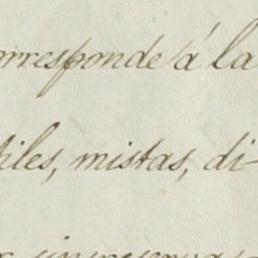 orresponde á la
tiles, mistas, di-